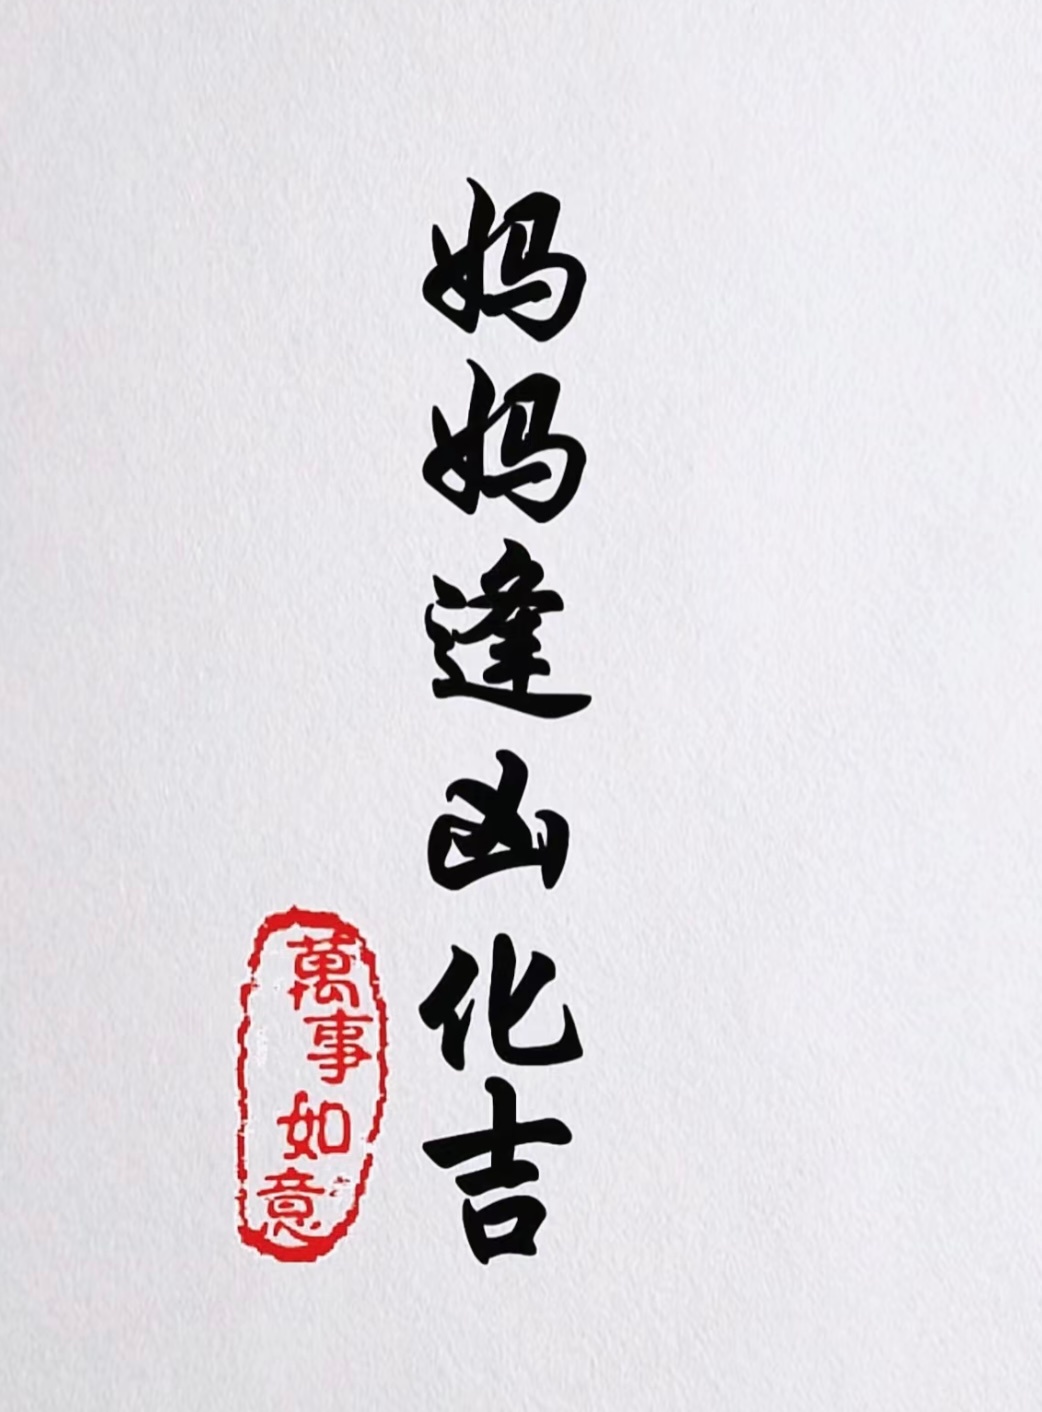 妈妈逢凶化吉
萬事如意